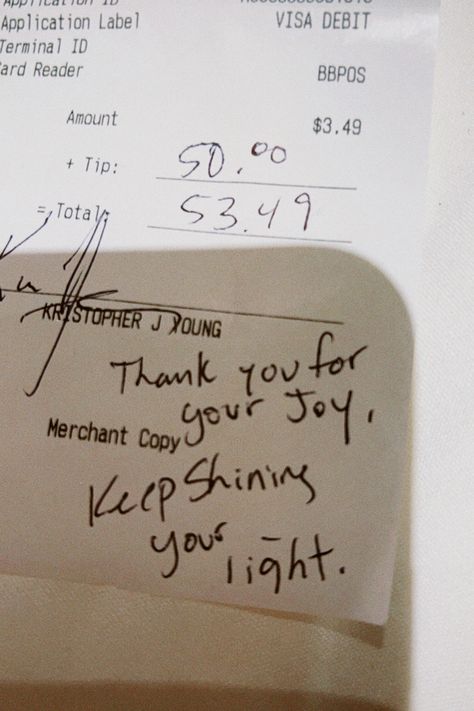 Application Label VISA DEBIT
Terminal ID
Card Reader BBPOS
Amount $3.49
+ Tip: 50.00
= Total: 53.49
KRISTOPHER J YOUNG
Thank you for
your Joy,
Merchant Copy
Keep Shining
your
light.